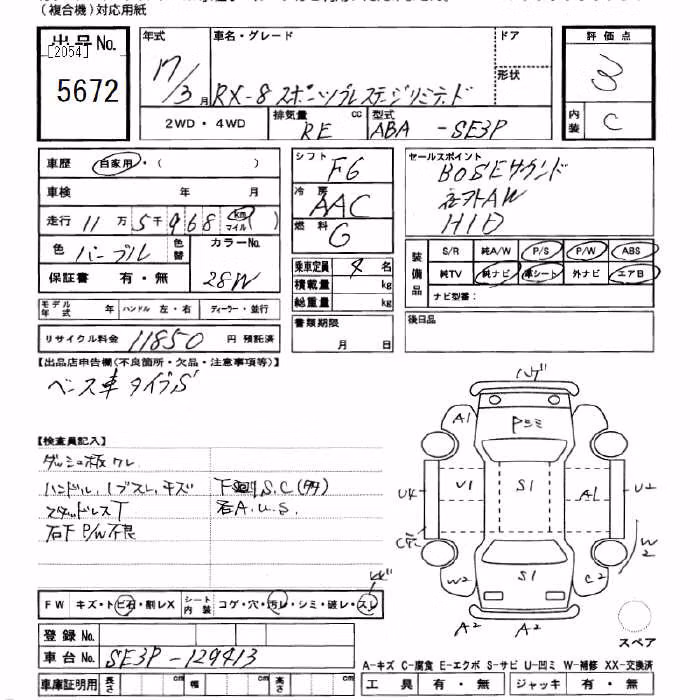 (複合機)対応用紙
出品No.
[2054]
5672
年式
17/3月
車名・グレード
RX-8 スポーツプレステージリミテッド
ドア
形状
2WD・4WD
排気量 cc
RE
型式
ABA-SE3P
評価点
3
内装
C
車歴 自家用・( )
車検 年 月
走行 11万5千968 km マイル ( )
色 パープル 色替
カラーNo. 28W
保証書 有・無
モデル年式 年 ハンドル 左・右 ディーラー・並行
リサイクル料金 11850 円 預託済
シフト F6
冷房 AAC
燃料 G
乗車定員 4 名
積載量 kg
総重量 kg
書類期限
月 日
セールスポイント
BOSEサウンド
社外AW
HID
装備品
S/R 純A/W P/S P/W ABS
純TV 純ナビ 革シート 外ナビ エアB
ナビ型番:
後日品
【出品店申告欄(不良箇所・欠品・注意事項等)】
ベース車 タイプS
【検査員記入】
ダッシュ板 ワレ
ハンドル, Iブスレ, キズ
下回りS.C(多)
スタッドレスT
右A.U.S.
右下 P/W不良
FW キズ・トビ石・割レX
シート内装 コゲ・穴・汚レ・シミ・破レ・スレ
登録No.
車台No. SE3P-129413
車庫証明用 長さ cm 幅 cm 高さ cm
ハゲ
A1
Pシミ
U4
U1
S1
A1
U2
W2
W2
S1
C2
A2
A2
スペア
A-キズ C-腐食 E-エクボ S-サビ U-凹ミ W-補修 XX-交換済
工具 有・無 ジャッキ 有・無